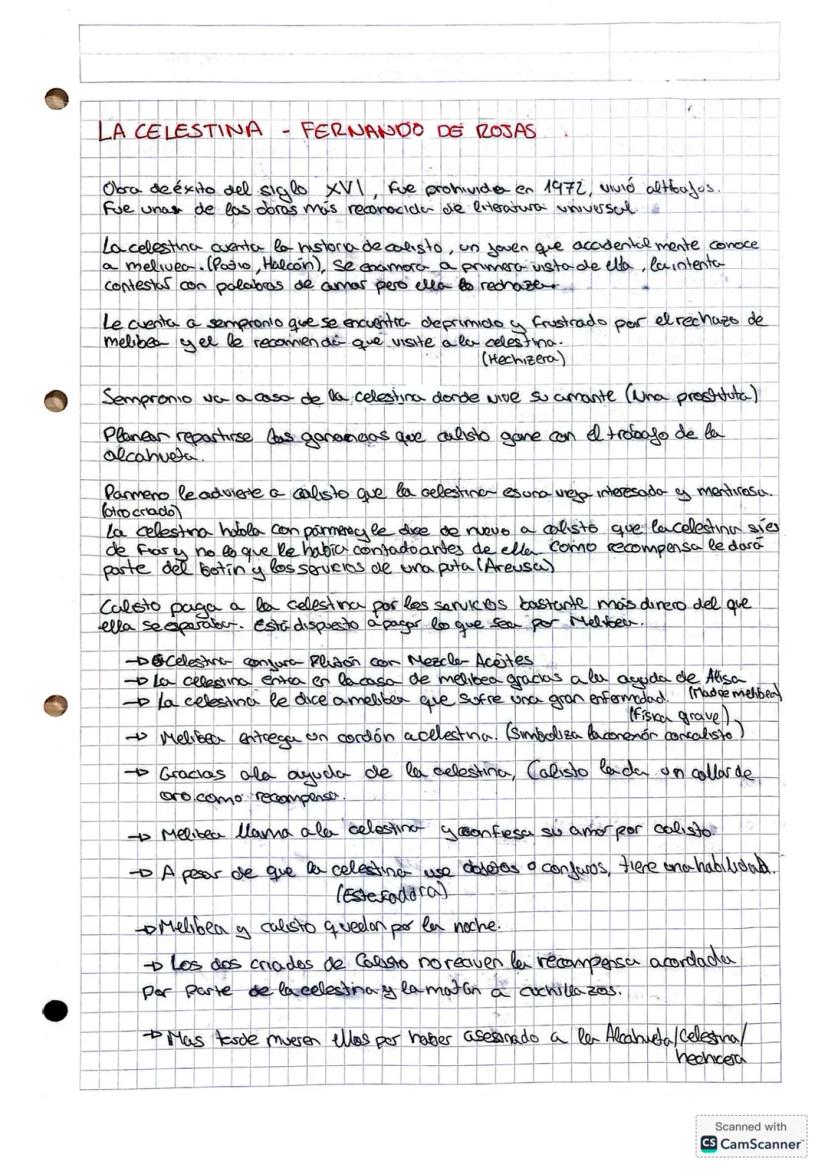 LA CELESTINA - FERNANDO DE ROJAS .
Obra de éxito del siglo XVI, fue prohivida en 1972, vivió altibajos.
Fue unas de las obras más reconocida de literatura universal.
La celestina cuenta la historia de calisto, un joven que accidentel mente conoce
a melivea. (Patio, Halcón), se enamora a primera vista de ella, la intenta
contestar con palabras de amar pero ella lo rechaza.
Le cuenta a sempronio que se encuentra deprimido y frustrado por el rechazo de
melibea y el le recomienda que visite a la celestina.
(Hechizera)
Sempronio va a casa de la celestina donde vive su amante (Una prostituta)
Planean repartirse las ganancias que calisto gane con el trabajo de la
alcahueta.
Parmeno le advierte a calisto que la celestina es una vieja interesada y mentirosa.
(otro criado)
La celestina habla con parmeno y le dice de nuevo a calisto que la celestina si es
de fiar y no lo que le había contado antes de ella como recompensa le dará
parte del botín y los servicios de una puta (Areusa)
Calisto paga a la celestina por los servicios bastante más dinero del que
ella se esperaba. Está dispuesto a pagar lo que sea por Melibea.
→ Celestina conjura Plutón con Mezcla Aceites
→ La celestina entra en la casa de melibea gracias a la ayuda de Alisa
→ La celestina le dice a melibea que sufre una gran enfermedad. (Madre melibea)
(Física grave)
→ Melibea entrega un cordón a celestina. (Simboliza la conexión con calisto)
→ Gracias a la ayuda de la celestina, Calisto la da un collar de
oro como recompensa.
→ Melibea llama a la celestina y confiesa su amor por calisto
→ A pesar de que la celestina use objetos o conjuros, tiene una habilidad.
(Estafadora)
→ Melibea y calisto quedan por la noche.
→ Los dos criados de Calisto no reciven la recompensa acordada
por parte de la celestina y la matan a cuchillazos.
→ Mas tarde mueren ellos por haber asesinado a la Alcahueta/Celestina/
hechicera
Scanned with
CS CamScanner